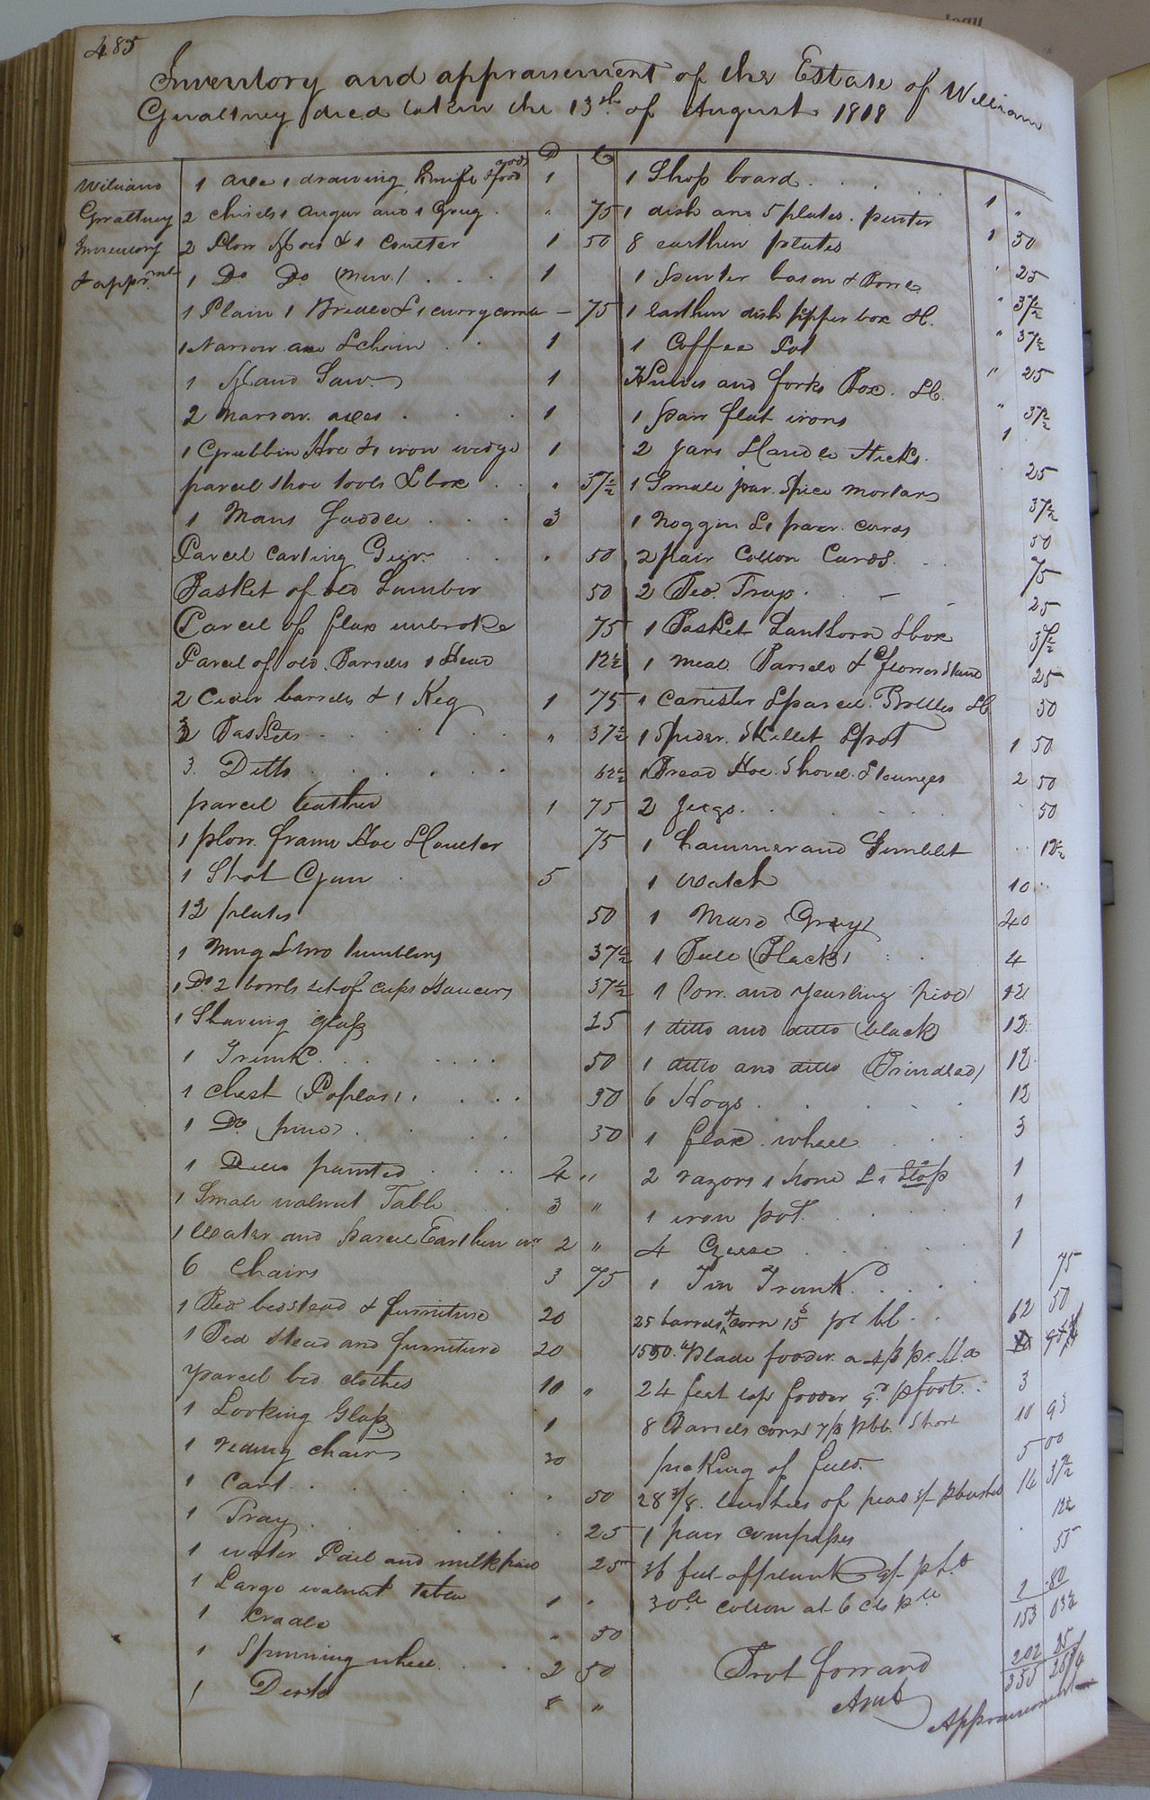 485
Inventory and appraisement of the Estate of William
Gwaltney decd taken the 13th of August 1818
D C
William
Gwaltney
Inventory
& apprmt
1 axe 1 drawing knife 1
2 chisels 1 augur and 1 Grug . " 75
2 Plow Hoes & 1 coulter 1 50
1 Do Do (new) . . . 1
1 Plain 1 & 1 curry comb — 75
1 Narrow axe & chain . . 1
1 Hand Saw 1
2 narrow axes . . . 1
1 Grubbin Hoe & 1 iron wedge 1
parcel shoe tools & box . . " 37½
1 Mans Saddle . . . 3
Parcel carting Geer . . " 50
Basket of old Lumber 50
Parcel of flax unbroke 75
Parcel of old Barrels 1 Stand 12½
2 Cider barrels & 1 Keg 1 75
2 Baskets . . . " 37½
3 Ditto . . . . . . 62½
parcel leather 1 75
1 plow frame Hoe & Coulter 75
1 Shot Gun . 5
12 plates 50
1 Mug & two tumblers 37½
1 Do 2 bowls set of cups & saucers 37½
1 Shaving glass 25
1 Trunk . . . . . . 50
1 Chest (Poplar) . . . . 50
1 Do (pine) . . . . 50
1 Ditto painted . . . . 4 "
1 Small walnut Table . . 3 "
1 and parcel Earthen wr 2 "
6 Chairs 3 75
1 Bed bedstead & furniture 20
1 Bed stead and furniture 20
parcel bed clothes 10 "
1 Looking Glass 1
1 riding chair 30
1 Cart . . . . . . . 50
1 Tray . . . . . . 25
1 water Pail and milk pail 25
1 Large walnut table 1 "
1 Cradle " 50
1 Spinning wheel . . . . 2 50
1 Desk 8 "
1 Shop board . . . . . . 1 "
1 dish and 5 plates . pewter 1 50
8 earthen plates " 25
1 pewter bason & " 37½
1 earthen dish pepper box &c. " 37½
1 Coffee Pot " 25
Knives and forks Box . &c. " 37½
1 pair flat irons 1
2 Jars & Candle Sticks . 25
1 Small jar . Spice mortar 37½
1 Noggin & 1 pair cards 50
2 pair Cotton Cards . . . 75
2 Trap . — — 25
1 Basket Lanthorn & box 37½
1 meal Barrel & flower Stand 25
1 Canister & parcel Bottles &c 50
1 Spider . Skillet & pot 1 50
1 Bread Hoe . Shovel & tounges 2 50
2 Juggs . . . . . 50
1 hammer and Gimblet . . 12½
1 watch 10 ..
1 Mare (Gray) 40
1 (Black) . . 4
1 Cow and yearling 12
1 ditto and ditto (black) 12
1 ditto and ditto (Brindled) 12
6 Hogs . . . . . . 12
1 flax wheel . . . 3
2 razors 1 hone & 1 Strop 1
1 iron pot . . . . . 1
4 Geese . . . . . . 1
1 Tin Trunk . . . . 75
25 barrels of corn 15s pr bl . . 62 50
1550 lb blade fodder
24 feet top fodder pfoot . . 3
8 Barrels corn 7/6 pbb. Short 10 93
picking of field . 5 00
28 3/8 bushels of peas 3/ pbushel 14 37½
1 pair compasses . 12½
36 feet of plank
30 lb cotton at 6 cts p lb 1 80
153 03½
Brot forward 202 25
355
Amt Appraisement